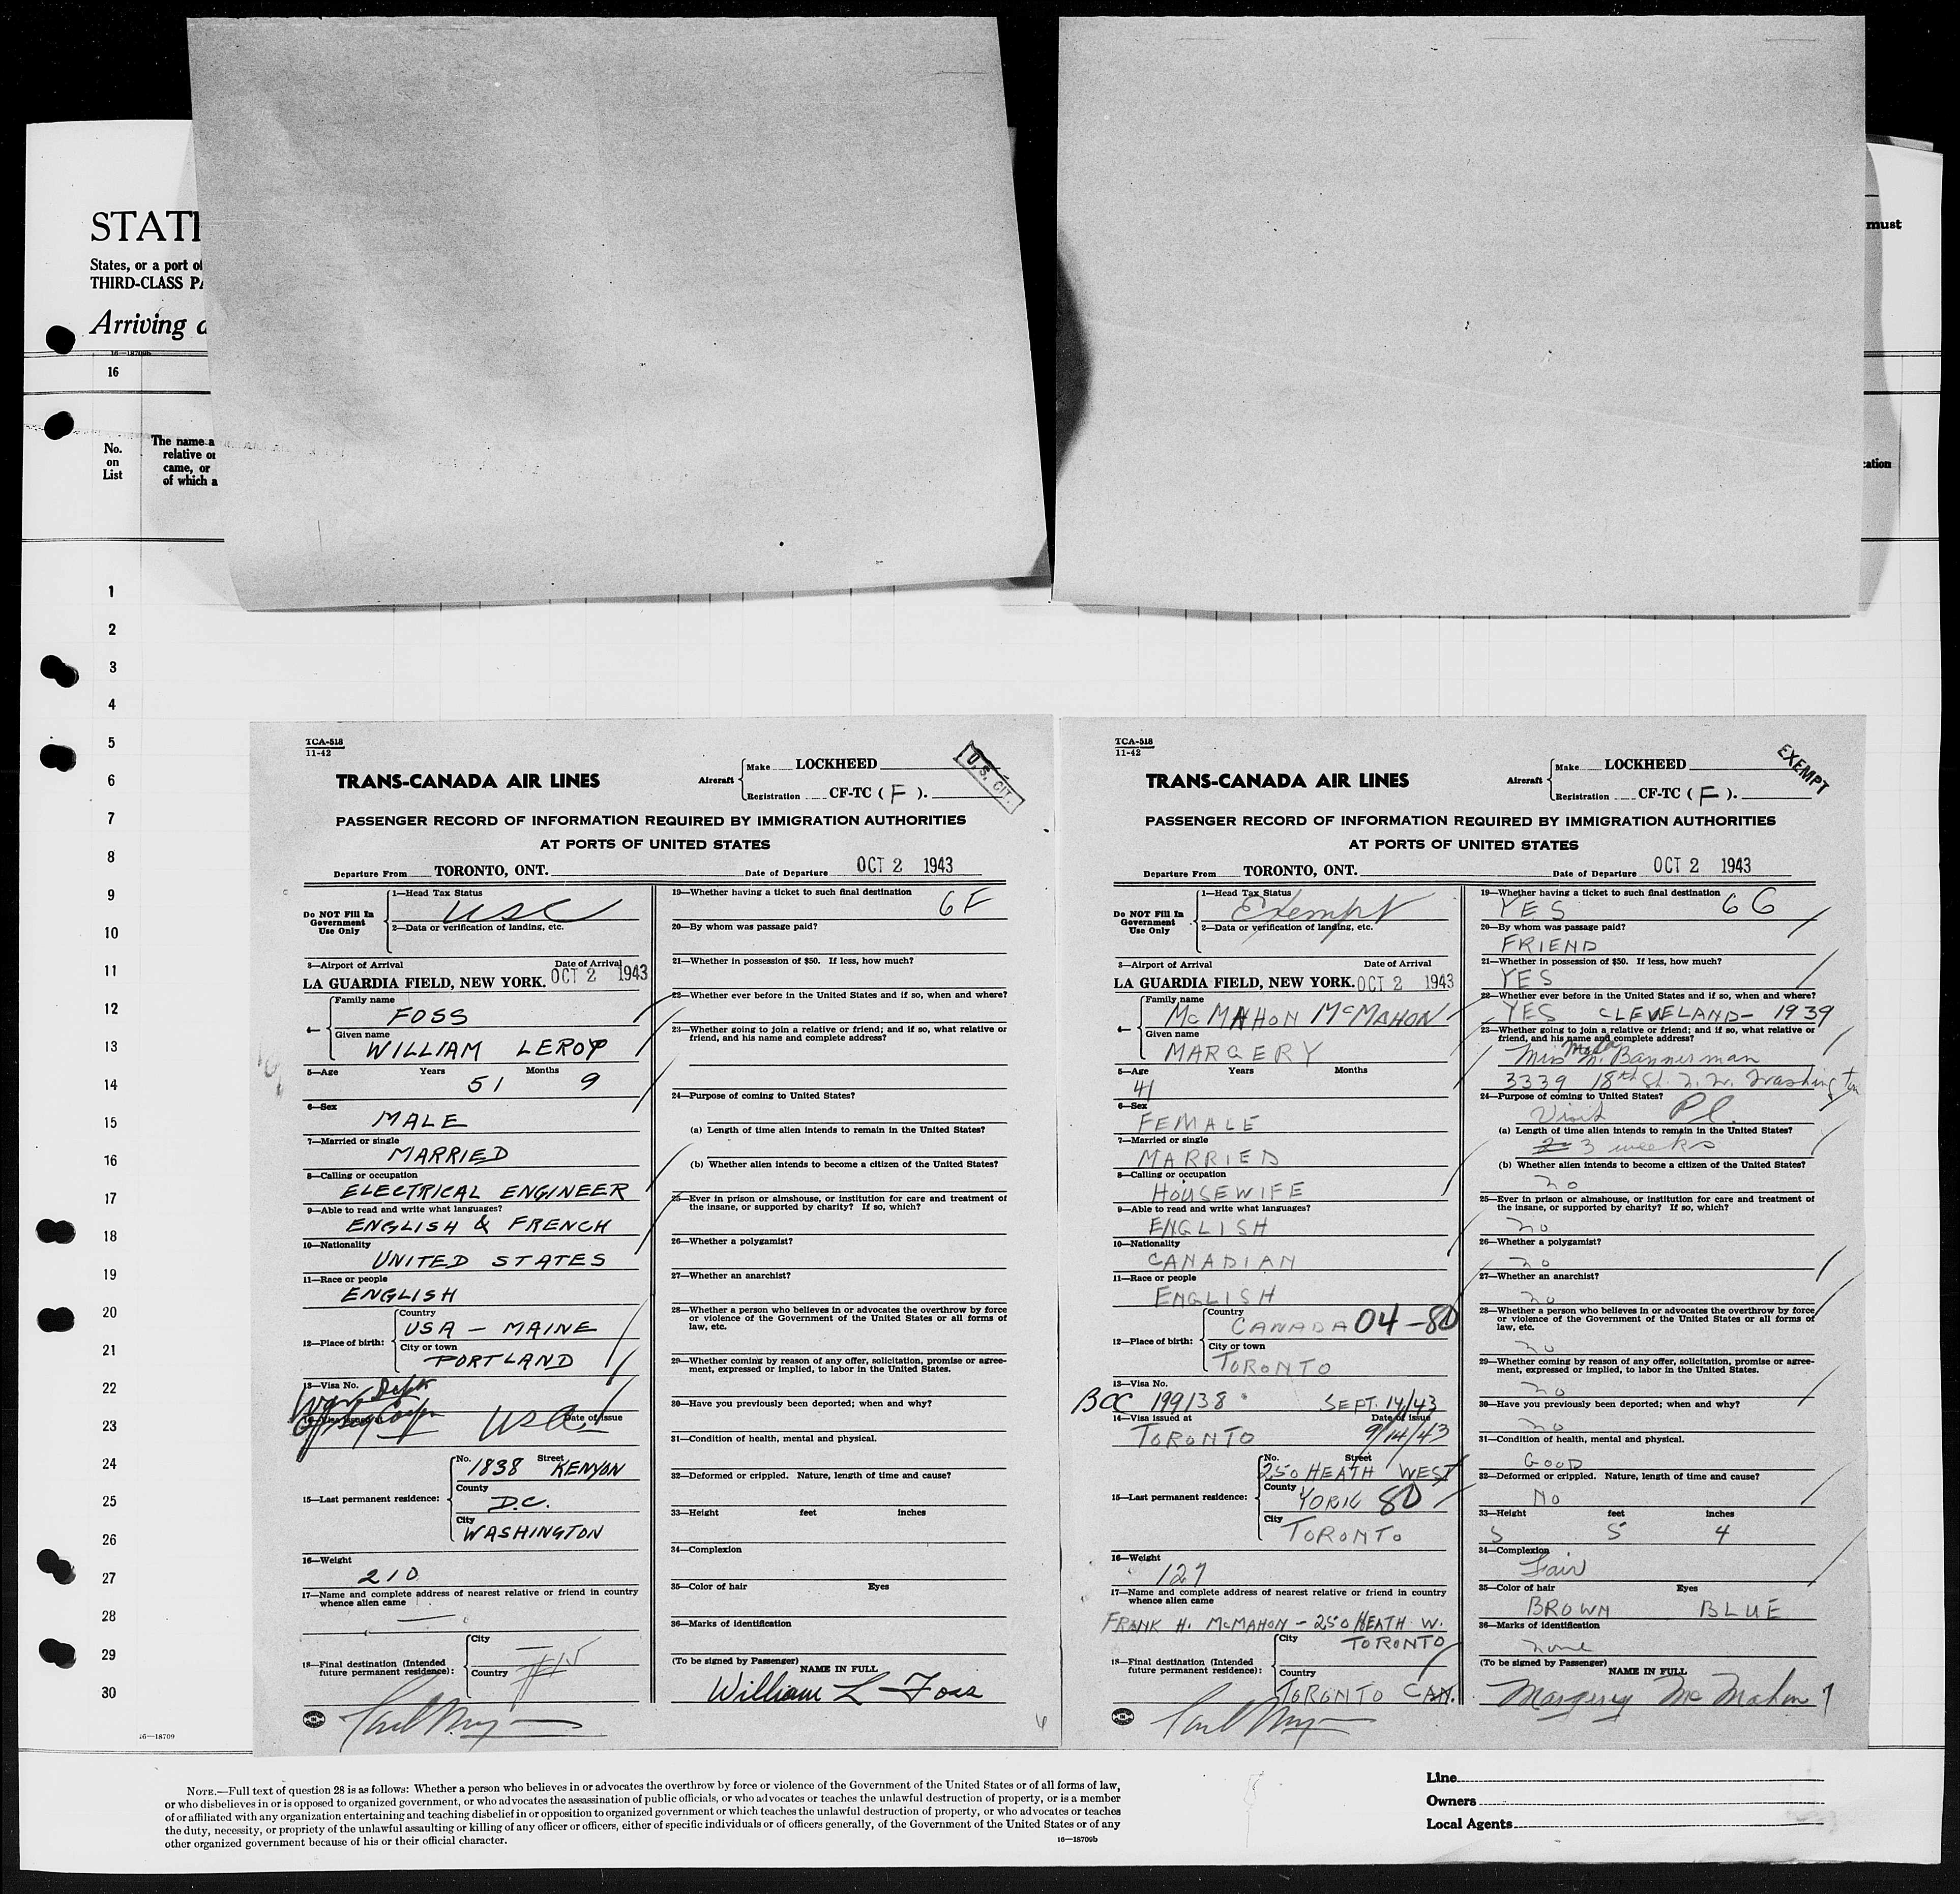 STATE
States, or a port of
THIRD-CLASS PA
Arriving a
16—18709b
16
No.
on
List
The name a
relative or
came, or
of which a
must
cation
1
2
3
4
5
6
7
8
9
10
11
12
13
14
15
16
17
18
19
20
21
22
23
24
25
26
27
28
29
30
16—18709
TCA-518
11-42
TRANS-CANADA AIR LINES
Aircraft
Make LOCKHEED
Registration CF-TC ( F ).
U.S. CIT.
PASSENGER RECORD OF INFORMATION REQUIRED BY IMMIGRATION AUTHORITIES
AT PORTS OF UNITED STATES
Departure From TORONTO, ONT. Date of Departure OCT 2 1943
Do NOT Fill In
Government
Use Only
1—Head Tax Status
USC
2—Data or verification of landing, etc.
3—Airport of Arrival Date of Arrival
LA GUARDIA FIELD, NEW YORK. OCT 2 1943
4—
Family name
FOSS
Given name
WILLIAM LEROY
5—Age Years Months
51 9
6—Sex
MALE
7—Married or single
MARRIED
8—Calling or occupation
ELECTRICAL ENGINEER
9—Able to read and write what languages?
ENGLISH & FRENCH
10—Nationality
UNITED STATES
11—Race or people
ENGLISH
12—Place of birth:
Country
USA - MAINE
City or town
PORTLAND
13—Visa No.
War Dept
14—Visa issued at Date of issue
USC
15—Last permanent residence:
No. Street
1838 KENYON
County
D.C.
City
WASHINGTON
16—Weight
210
17—Name and complete address of nearest relative or friend in country
whence alien came
—
18—Final destination (Intended
future permanent residence):
City
Country
19—Whether having a ticket to such final destination
6F
20—By whom was passage paid?
21—Whether in possession of $50. If less, how much?
22—Whether ever before in the United States and if so, when and where?
23—Whether going to join a relative or friend; and if so, what relative or
friend, and his name and complete address?
24—Purpose of coming to United States?
(a) Length of time alien intends to remain in the United States?
(b) Whether alien intends to become a citizen of the United States?
25—Ever in prison or almshouse, or institution for care and treatment of
the insane, or supported by charity? If so, which?
26—Whether a polygamist?
27—Whether an anarchist?
28—Whether a person who believes in or advocates the overthrow by force
or violence of the Government of the United States or all forms of
law, etc.
29—Whether coming by reason of any offer, solicitation, promise or agree-
ment, expressed or implied, to labor in the United States.
30—Have you previously been deported; when and why?
31—Condition of health, mental and physical.
32—Deformed or crippled. Nature, length of time and cause?
33—Height feet inches
34—Complexion
35—Color of hair Eyes
36—Marks of identification
(To be signed by Passenger)
NAME IN FULL
William L Foss
TCA-518
11-42
TRANS-CANADA AIR LINES
Aircraft
Make LOCKHEED
Registration CF-TC ( F ).
EXEMPT
PASSENGER RECORD OF INFORMATION REQUIRED BY IMMIGRATION AUTHORITIES
AT PORTS OF UNITED STATES
Departure From TORONTO, ONT. Date of Departure OCT 2 1943
Do NOT Fill In
Government
Use Only
1—Head Tax Status
Exempt
2—Data or verification of landing, etc.
3—Airport of Arrival Date of Arrival
LA GUARDIA FIELD, NEW YORK. OCT 2 1943
4—
Family name
McMAHON McMAHON
Given name
MARGERY
5—Age Years Months
41
6—Sex
FEMALE
7—Married or single
MARRIED
8—Calling or occupation
HOUSEWIFE
9—Able to read and write what languages?
ENGLISH
10—Nationality
CANADIAN
11—Race or people
ENGLISH
12—Place of birth:
Country
CANADA 04-8D
City or town
TORONTO
13—Visa No.
BCC 199138 SEPT. 14/43
14—Visa issued at Date of issue
TORONTO 9/14/43
15—Last permanent residence:
No. Street
250 HEATH WEST
County
YORK 8D
City
TORONTO
16—Weight
127
17—Name and complete address of nearest relative or friend in country
whence alien came
FRANK H. McMAHON - 250 HEATH W.
18—Final destination (Intended
future permanent residence):
City
TORONTO
Country
TORONTO CAN.
19—Whether having a ticket to such final destination
YES 6G
20—By whom was passage paid?
FRIEND
21—Whether in possession of $50. If less, how much?
YES
22—Whether ever before in the United States and if so, when and where?
YES CLEVELAND - 1939
23—Whether going to join a relative or friend; and if so, what relative or
friend, and his name and complete address?
Mrs Bannerman
3339 18th St. N.W. Washington
24—Purpose of coming to United States?
Visit Pl
(a) Length of time alien intends to remain in the United States?
2 3 weeks
(b) Whether alien intends to become a citizen of the United States?
no
25—Ever in prison or almshouse, or institution for care and treatment of
the insane, or supported by charity? If so, which?
no
26—Whether a polygamist?
no
27—Whether an anarchist?
no
28—Whether a person who believes in or advocates the overthrow by force
or violence of the Government of the United States or all forms of
law, etc.
no
29—Whether coming by reason of any offer, solicitation, promise or agree-
ment, expressed or implied, to labor in the United States.
no
30—Have you previously been deported; when and why?
no
31—Condition of health, mental and physical.
GOOD
32—Deformed or crippled. Nature, length of time and cause?
No
33—Height feet inches
5 5 4
34—Complexion
Fair
35—Color of hair Eyes
BROWN BLUE
36—Marks of identification
none
(To be signed by Passenger)
NAME IN FULL
Margery McMahon
NOTE.—Full text of question 28 is as follows: Whether a person who believes in or advocates the overthrow by force or violence of the Government of the United States or of all forms of law,
or who disbelieves in or is opposed to organized government, or who advocates the assassination of public officials, or who advocates or teaches the unlawful destruction of property, or is a member
of or affiliated with any organization entertaining and teaching disbelief in or opposition to organized government or which teaches the unlawful destruction of property, or who advocates or teaches
the duty, necessity, or propriety of the unlawful assaulting or killing of any officer or officers, either of specific individuals or of officers generally, of the Government of the United States or of any
other organized government because of his or their official character.
16—18709b
Line
Owners
Local Agents